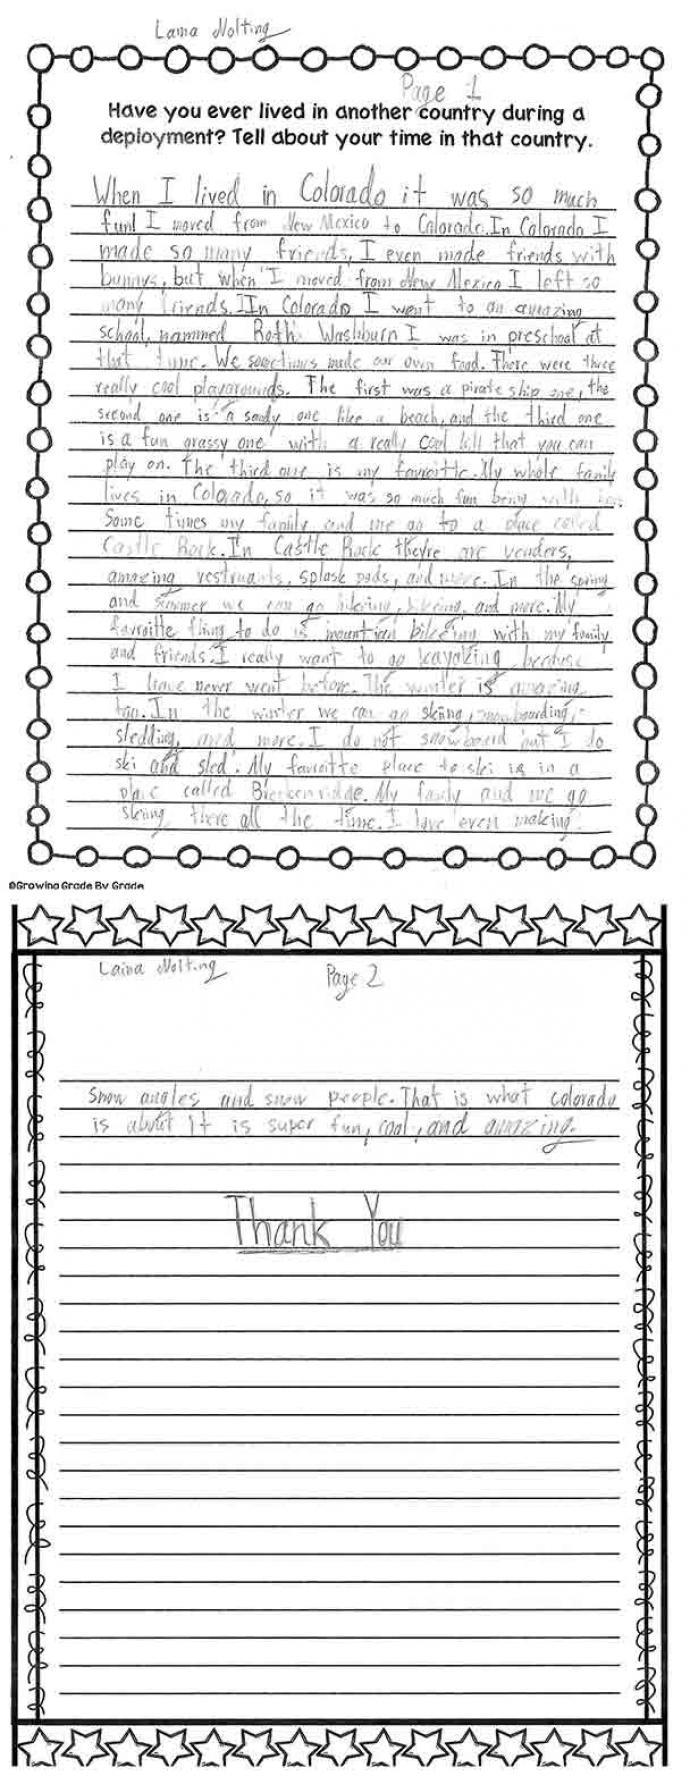 Laina Nolting
Page 1
Have you ever lived in another country during a
deployment? Tell about your time in that country.
When I lived in Colorado it was so much
fun! I moved from New Mexico to Colorado. In Colorado I
made so many friends, I even made friends with
bunnys, but when I moved from New Mexico I left so
many friends. In Colorado I went to an amazing
school, nammed Roth Washburn I was in preschool at
that time. We sometimes made our own food. There were three
really cool playgrounds. The first was a pirate ship one, the
second one is a sandy one like a beach, and the third one
is a fun grassy one with a really cool hill that you can
play on. The third one is my favroitte. My whole family
lives in Colorado, so it was so much fun being with
Some times my family and me go to a place called
Castle Rock. In Castle Rock theyre are venders,
amazing restruants, splash pads, and more. In the spring
and summer we can go and more. My
favroitte thing to do is mountian with my family
and friends. I really want to go kayaking because
I have never went before. The winter is amazing
too. In the winter we can go skiing, snowboarding,
sledding, and more. I do not snowboard but I do
ski and sled. My favroitte place to ski is in a
place called Breckenridge. My family and me go
skiing there all the time. I love even making
©Growing Grade By Grade
Laina Nolting
Page 2
snow angles and snow people. That is what colorado
is about it is super fun, cool, and amazing.
Thank You